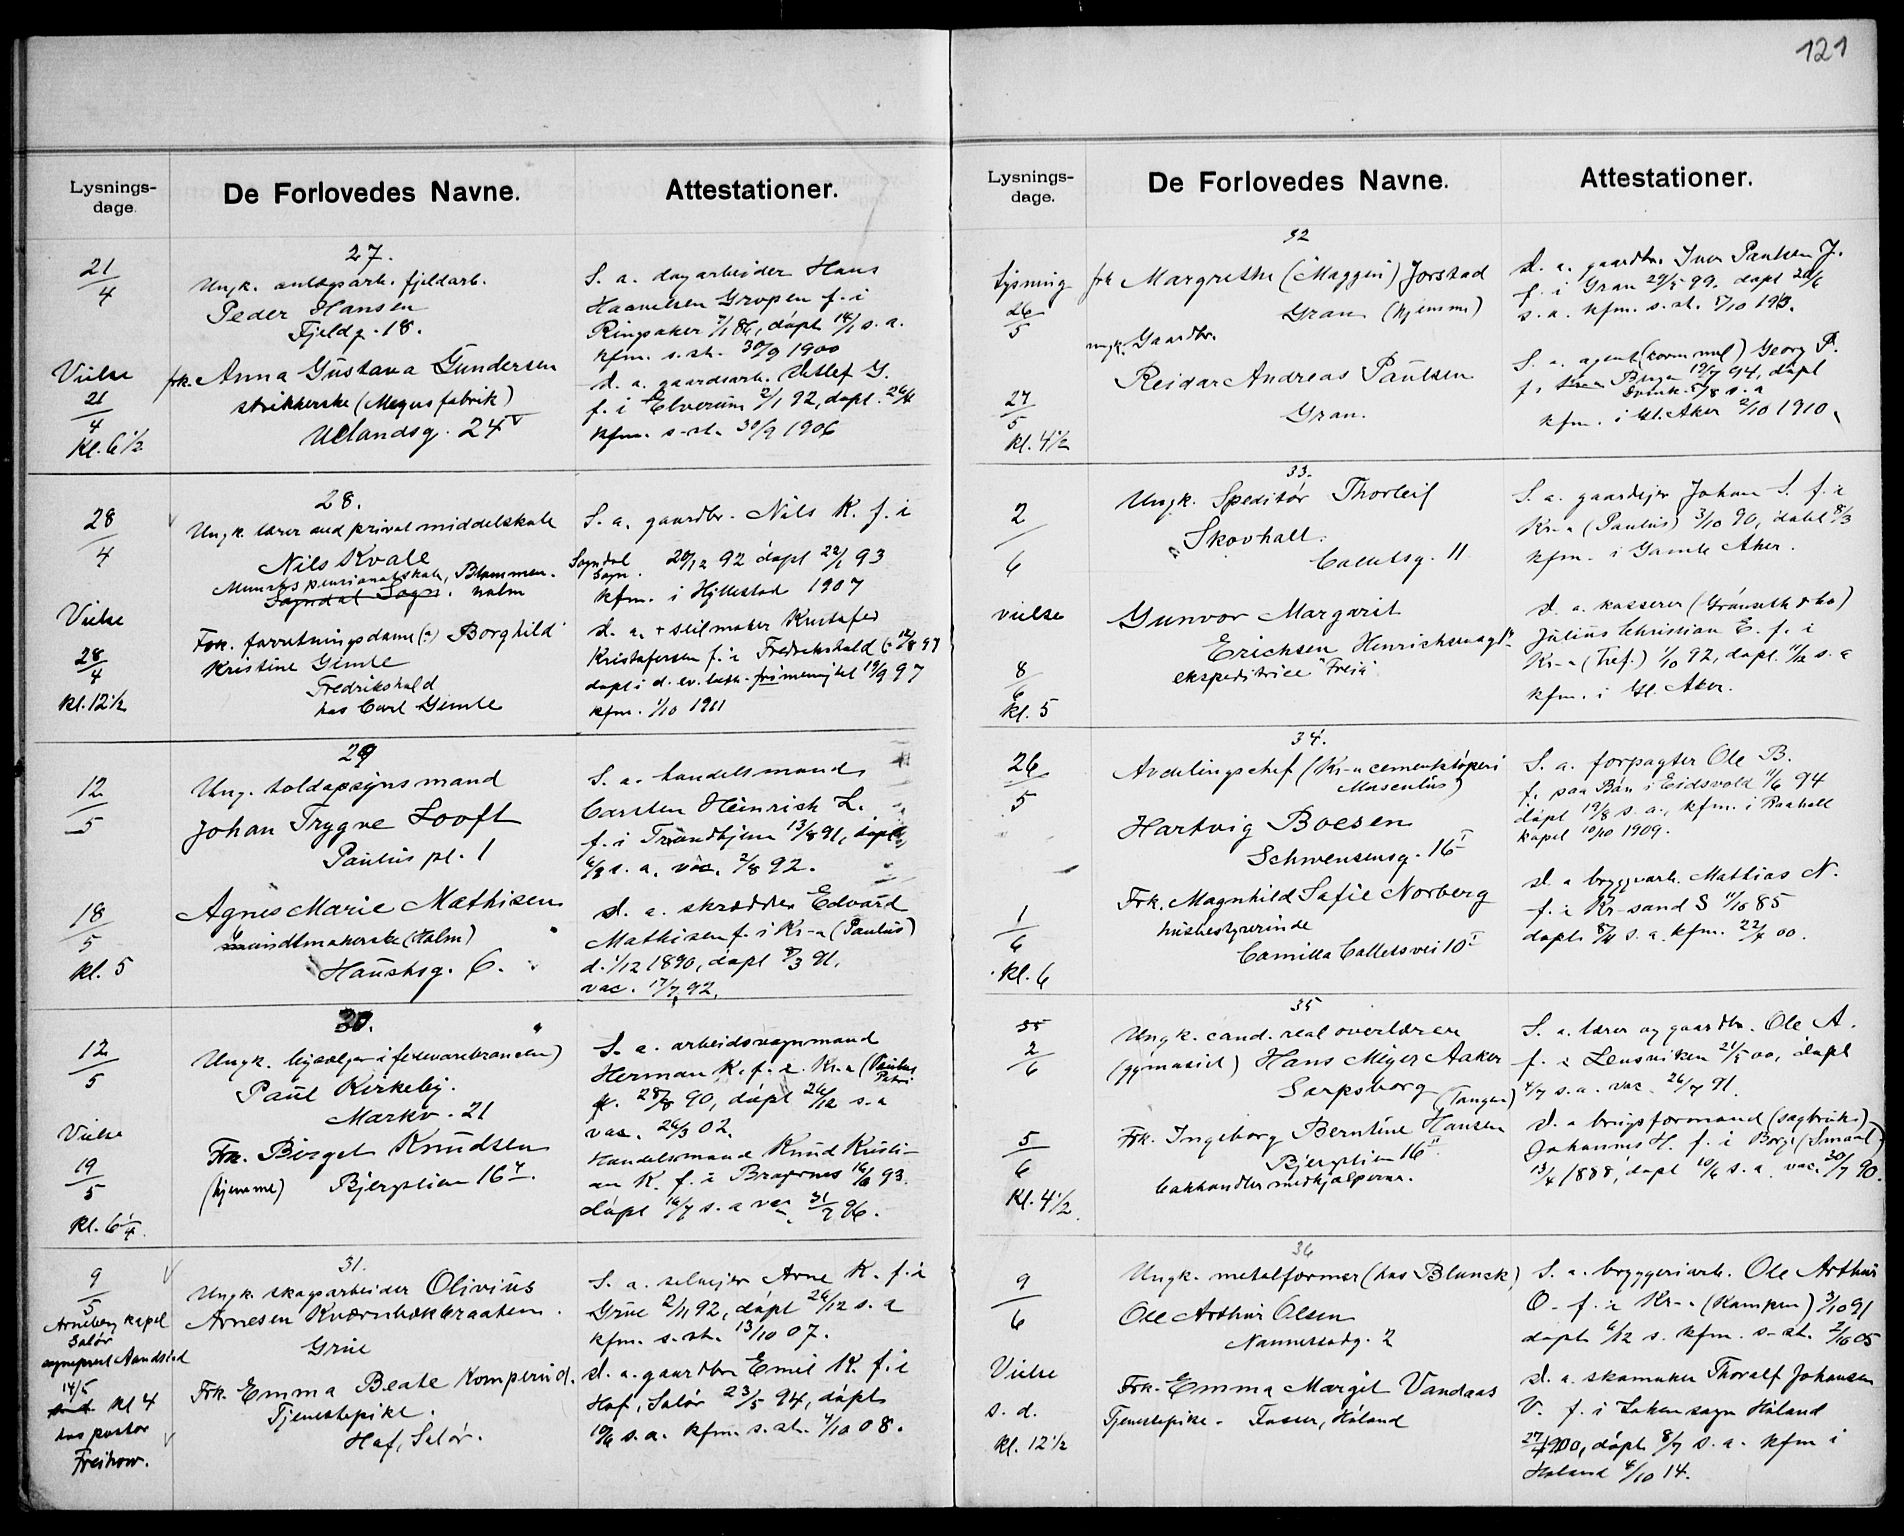 121
Lysnings-
dage.
De Forlovedes Navne.
Attestationer.
21/4
27.
Ungk. anlægsarb. fjeldarb.
Peder Hansen
Fjeldg. 18.
S. a. dagarbeider Hans
Haavelsen Gropen f. i
Ringsaker 7/1 86, døpt 14/1 s. a.
kfm. s. st. 30/9 1900
Vielse
21/4
Kl. 6 1/2
frk. Anna Gustava Gundersen
strikkerske (Magnus fabrik)
Uelandsg. 24 V
D. a. gaardsarb. Detlef G.
f. i Elverum 2/1 92, døpt. 26/6
kfm. s. st. 30/9 1906
28/4
28.
Ungk. lærer ved privat middelskole
Nils Kvale
pensionatskole, Blommen-
Sogndal Sogn. holm
S. a. gaardbr. Nils K. f. i
Sogndal
Sogn. 20/12 92 døpt 22/1 93
kfm. i Hyllestad 1907
Vielse
28/4
Kl. 12 1/2
Frk. forretningsdame (:) Borghild
Kristine Gimle
Fredrikshald
hos Carl Gimle
D. a. + seilmaker Kristofer
Kristofersen f. i Fredrikshald 12/8 97
døpt i d. ev. luth. frimenighet 19/9 97
kfm. 1/10 1911
12/5
29
Ung. toldopsynsmand
Johan Trygve Looft
Paulus pl. 1
S. a. handelsmand
Carsten Heinrich L.
f. i Trondhjem 13/8 91, døpt
6/9 s. a. vac. 2/8 92.
18/5
Kl. 5
Agnes Marie Mathisen
(Holm)
Hauchsg. 6.
D. a. skrædder Edvard
Mathisen f. i Kr-a (Paulus)
d. 1/12 1890, døpt 8/3 91.
vac. 17/7 92.
12/5
30.
Ungk.
Paul Kirkeby.
Markv. 21
S. a. arbeidsvognmand
Herman K. f. i Kr.a (Paulus
Petri
f. 28/8 90, døpt 26/12 s. a
vac. 26/3 02.
Vielse
19/5
Kl. 6 1/4.
Frk. Birgit Knudsen
(hjemme) Bjerglien 16 V.
Handelsmand Knud Kristi-
an K. f. i Bragernes 16/6 93.
døpt 16/7 s. a vac. 31/7 96.
9/5
31.
Ungk. skogsarbeider Olivius
Arnesen Kværnbækbraaten.
Grue
S. a. selveier Arne K. f. i
Grue 2/11 92, døpt 26/12 s. a
kfm. s. st. 13/10 07.
Arneberg kapel
Solør
sogneprest Aandstad
14/5
kl 4
hos pastor
Freihow.
Frk. Emma Beate Komperud.
Tjenestepike.
Hof, Solør.
D. a. gaardbr Emil K. f. i
Hof, Solør 23/5 94, døpt
19/6 s. a. kfm. s. st. 4/10 08.
Lysnings-
dage.
De Forlovedes Navne.
Attestationer.
32
Lysning
26/5
frk Margrethe (Maggen) Jorstad
Gran (hjemme)
D. a. gaardbr. Iver Paulsen J.
f. i Gran 29/5 99. døpt 20/6
s. a. kfm. s. st. 5/10 1913.
27/5
Kl. 4 1/2
ungk. Gaardbr.
Reidar Andreas Paulsen
Gran.
S. a. agent (kommun) Georg P.
døpt
5/8 s. a
kfm. i Gl. Aker 2/10 1910.
33.
2/6
Ungk. Speditør Thorleif
Skovholt.
Calentsg. 11
S. a. gaardeier Johan S. f. i
Kr-a (Paulus) 3/10 90, døbt 8/3
kfm. i Gamle Aker.
vielse
8/6
Kl. 5
Gunvor Margarit
Erichsen
ekspeditrice Freia
D. a. kasserer (Grønseth & Co)
Julius Christian E. f. i
Kr-a (Tref.) 1/10 92, døpt. 11/12 s. a
kfm. i Gl. Aker.
34.
26/5
Avdelingschef (Kr-a cementstøperi
Hartvig Boesen
Schwensensg. 16 I
S. a. forpagter Ole B.
f. paa Bøn i Eidsvold 11/6 94
døpt 19/8 s. a., kfm. i Raaholt
kapel 10/10 1909.
1/6
Kl. 6
Frk. Magnhild Sofie Norberg
husbestyrerinde
Camilla Colletsvei 10 I
D. a bryggearb. Mathias N.
f. i Kr-sand S 11/10 85
døpt 8/11 s. a. kfm. 22/4 00.
35
2/6
Ungk. cand. real overlærer
(gymnasiet) Hans Meyer Aaker
Sarpsborg
S. a. lærer og gaardbr. Ole A.
f. i Lensviken 21/5 00, døpt
4/7 s. a. vac. 26/7 91.
5/6
Kl. 4 1/2.
Frk. Ingeborg Berntine Hansen
(Tangen)
Bjerglien 16 II
medhjelperske.
D. a brugsformand (sagbruks)
Johannes H. f. i Borge (Smaal.)
13/4 1888, døpt 10/6 s. a. vac. 30/7 90.
36
9/6
Ungk. metalformer (hos Blunck)
Ole Arthur Olsen
Nannestadg. 2
S. a. bryggeriarb. Ole Arthur
O. f. i Kr-a (Kampen) 3/10 91
døpt 6/12 s. kfm. s. st. 2/10 05
Vielse
s. d.
Kl. 12 1/2
Frk. Emma Margit Vandaas
Tjenestepike - Fosser, Høland
D. a. skomaker Thoralf Johansen
V. f. i Løken sogn Høland
27/4 1900, døpt 8/7 s. a. kfm i
Høland 4/10 14.